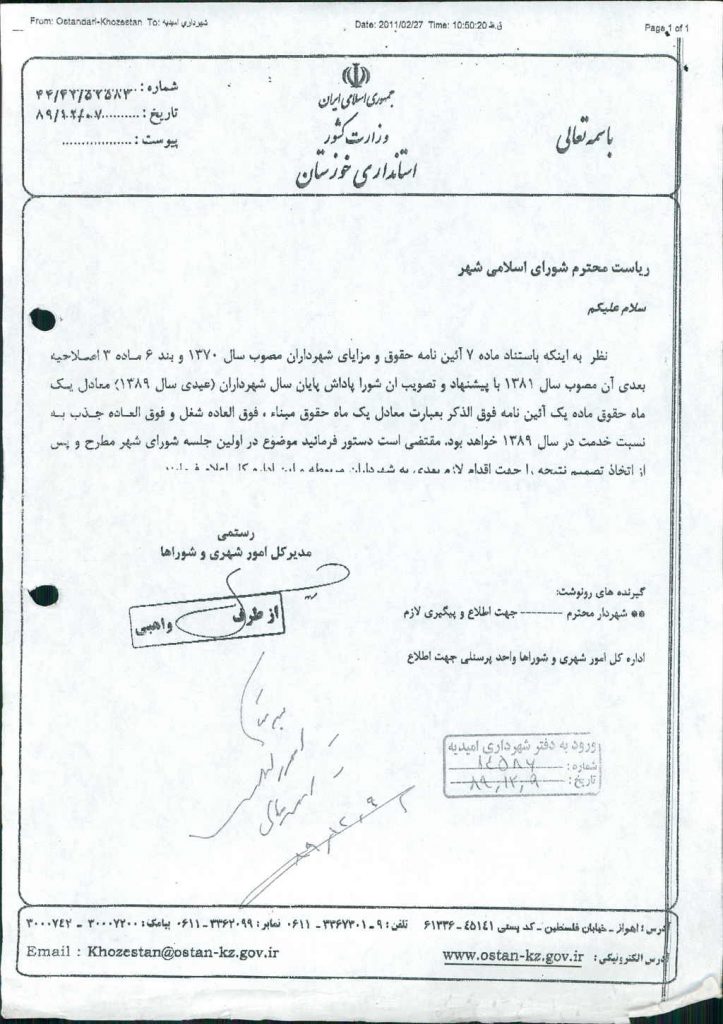 From: Ostandari-Khozestan To: شهرداري اميديه Date: 2011/02/27 Time: 10:50:20 ق.ظ Page 1 of 1
جمهوری اسلامی ایران
وزارت کشور
استانداری خوزستان
باسمه تعالی
شماره : ۴۴/۴۲/۵۲۵۸۳
تاریخ : ۸۹/۱۲/۰۷
پیوست :
ریاست محترم شورای اسلامی شهر
سلام علیکم
نظر به اینکه باستناد ماده ۷ آئین نامه حقوق و مزایای شهرداران مصوب سال ۱۳۷۰ و بند ۶ ماده ۳ اصلاحیه
بعدی آن مصوب سال ۱۳۸۱ با پیشنهاد و تصویب ان شورا پاداش پایان سال شهرداران (عیدی سال ۱۳۸۹) معادل یک
ماه حقوق ماده یک آئین نامه فوق الذکر بعبارت معادل یک ماه حقوق مبناء ، فوق العاده شغل و فوق العاده جذب به
نسبت خدمت در سال ۱۳۸۹ خواهد بود. مقتضی است دستور فرمائید موضوع در اولین جلسه شورای شهر مطرح و پس
از اتخاذ تصمیم نتیجه را جهت اقدام لازم بعدی به شهرداران مربوطه و این اداره کل اعلام فرمایند.
رستمی
مدیرکل امور شهری و شوراها
از طرف واهبی
گیرنده های رونوشت:
** شهردار محترم ---------- جهت اطلاع و پیگیری لازم
اداره کل امور شهری و شوراها واحد پرسنلی جهت اطلاع
ورود به دفتر شهرداری امیدیه
شماره: ۱۴۵۸۷
تاریخ: ۸۹,۱۲,۹
۸۹,۱۲,۹
آدرس : اهواز ـ خیابان فلسطین ـ کد پستی ۴۵۱۴۱-۶۱۳۳۶ تلفن : ۹-۳۳۶۷۳۰۱-۰۶۱۱ نمابر : ۳۳۶۲۰۹۹-۰۶۱۱ پیامک: ۳۰۰۰۷۲۰۰ - ۳۰۰۰۷۴۲
آدرس الکترونیکی : www.ostan-kz.gov.ir Email : Khozestan@ostan-kz.gov.ir